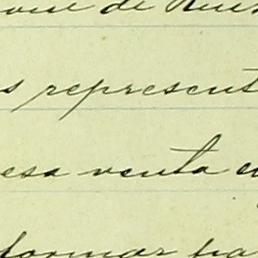 de
s represent
esa venta e
formar pa